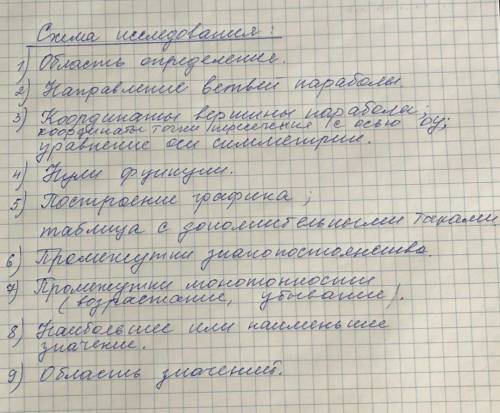 Схема исследования:
1) Область определения.
2) Направление ветвей параболы.
3) Координаты вершины параболы;
координаты точки пересечения с осью oy;
уравнение оси симметрии.
4) Нули функции.
5) Построение графика;
таблица с дополнительными точками
6) Промежутки знакопостоянства.
7) Промежутки монотонности
(возрастание, убывание).
8) Наибольшее или наименьшее
значение.
9) Область значений.